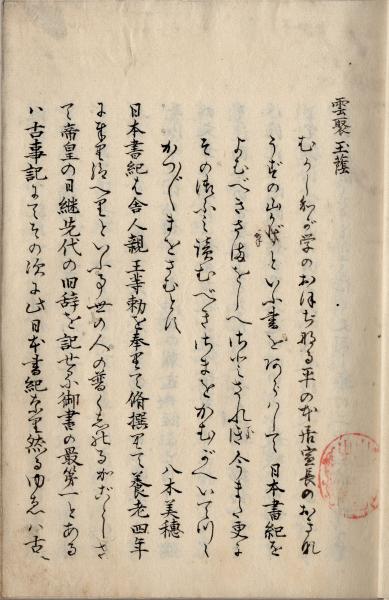 雲聚玉蔭
むかし我が学のおほぢなる平の本居宣長のおぢなれ
うずの山かげといふ書をあらはして日本書紀を
よむべきさまをしへさとされしを今また更に
その御ふみ読むべきさまをかむがへいでつつ
かつ〴〵しるさむとす
八木美穂
日本書紀は舎人親王等勅を奉りて脩撰りて養老四年
に奉り給へりといふ事世の人の普くしれるがごとしさ
て帝皇の日継先代の旧辞を記せる御書の最第一とある
ハ古事記にてその次に此日本書紀なり然るゆゑハ古